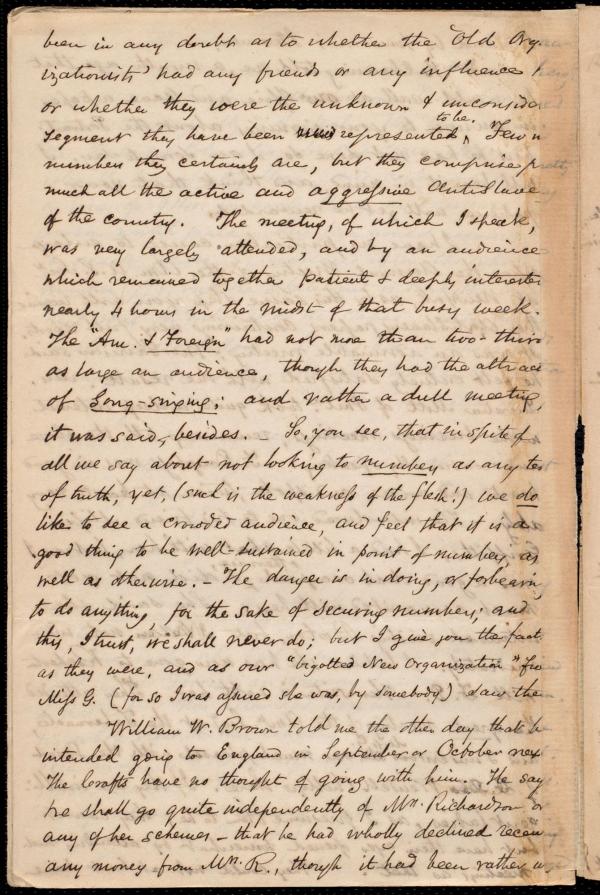 been in any doubt as to whether the "Old Org-
izationists" had any friends or any influence h
or whether they were the unknown & unconsider
to be.
segment they have been represented, Few in
numbers they certainly are, but they comprise pretty
much all the active and aggressive Antislave-
of the country. The meeting, of which I speak,
was very largely attended, and by an audience
which remained together patient & deeply interested
nearly 4 hours in the midst of that busy week.
The "Am. & Foreign" had not more than two-thir
as large an audience, though they had the attrac
of Song-singing; and rather a dull meeting,
it was said, besides. – So, you see, that in spite of
all we say about not looking to numbers as any tes
of truth, yet, (such is the weakness of the flesh!) we do
like to see a crowded audience, and feel that it is a
good thing to be well-sustained in point of numbers, as
well as otherwise. – The danger is in doing, or forbearing
to do anything, for the sake of securing numbers; and
this, I trust, we shall never do; but I give you the facts
as they were, and as our "bigotted New Organization" fri
Miss G. (for so I was assured she was, by somebody) saw the
William W. Brown told me the other day that he
intended going to England in September or October nex
The Crafts have no thought of going with him. He say
he shall go quite independently of Mrs. Richardson or
any of her schemes – that he had wholly declined receiv
any money from Mrs. R., though it had been rather u